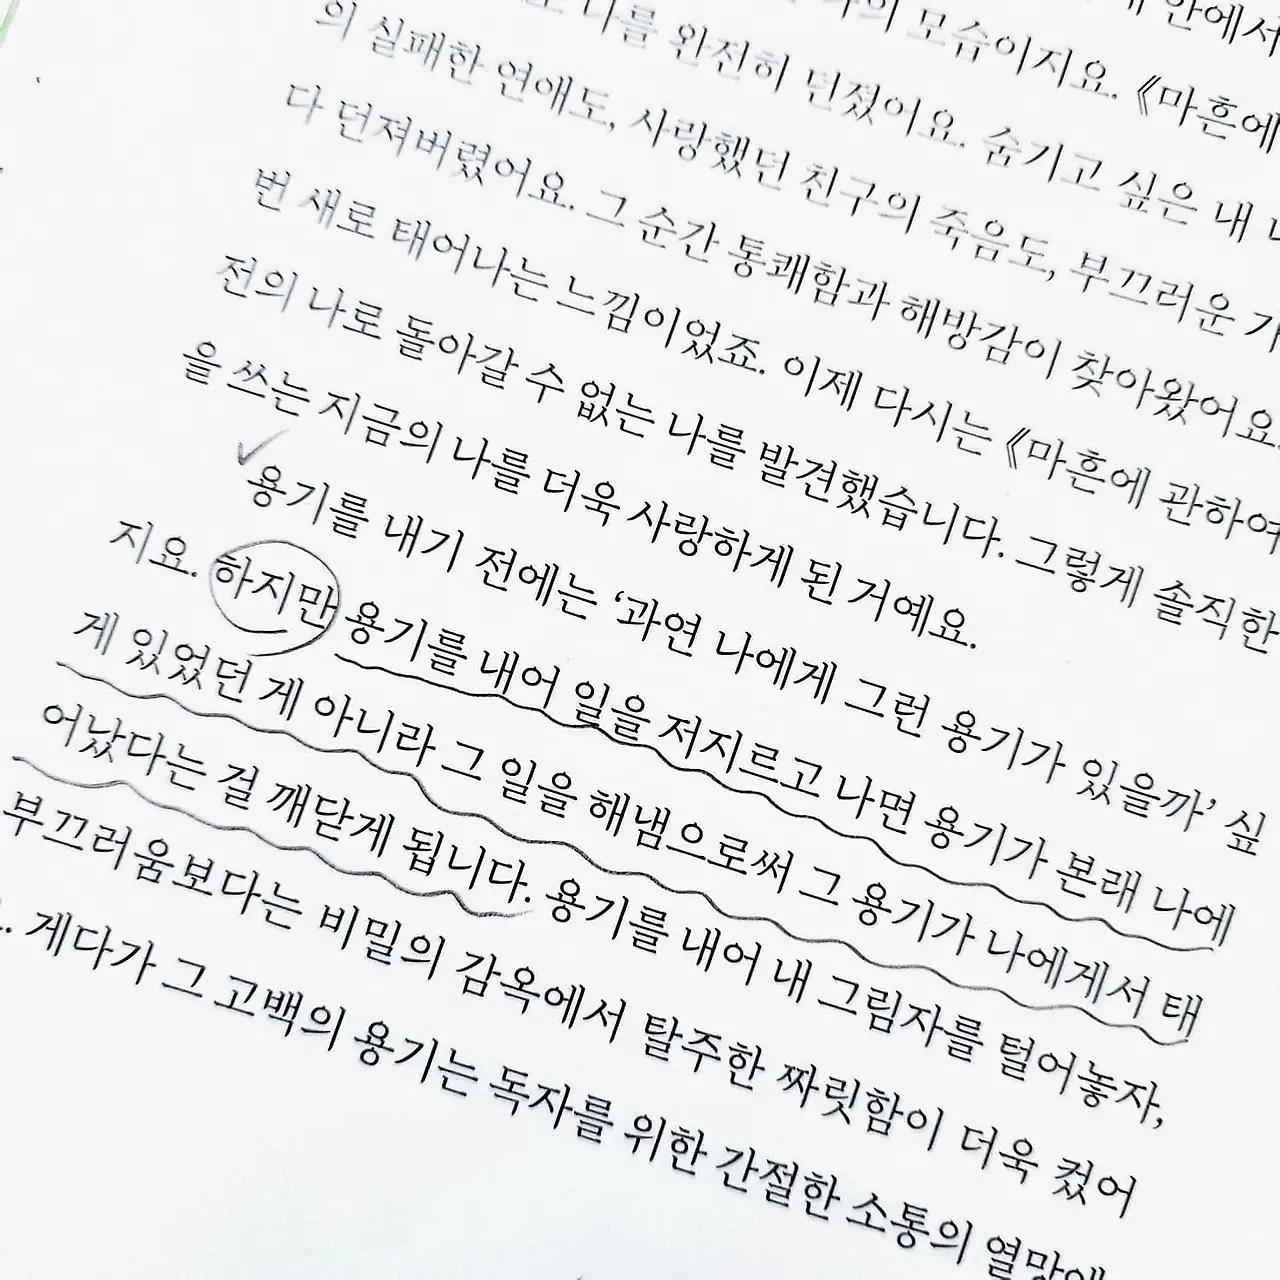 안에서
모습이지요. 《마흔에
나를 완전히 던졌어요. 숨기고 싶은 내
의 실패한 연애도, 사랑했던 친구의 죽음도, 부끄러운
다 던져버렸어요. 그 순간 통쾌함과 해방감이 찾아왔어요.
번 새로 태어나는 느낌이었죠. 이제 다시는 《마흔에 관하여
전의 나로 돌아갈 수 없는 나를 발견했습니다. 그렇게 솔직한
을 쓰는 지금의 나를 더욱 사랑하게 된 거예요.
용기를 내기 전에는 ‘과연 나에게 그런 용기가 있을까’ 싶
지요. 하지만 용기를 내어 일을 저지르고 나면 용기가 본래 나에
게 있었던 게 아니라 그 일을 해냄으로써 그 용기가 나에게서 태
어났다는 걸 깨닫게 됩니다. 용기를 내어 내 그림자를 털어놓자,
부끄러움보다는 비밀의 감옥에서 탈주한 짜릿함이 더욱 컸어
. 게다가 그 고백의 용기는 독자를 위한 간절한 소통의 열망에